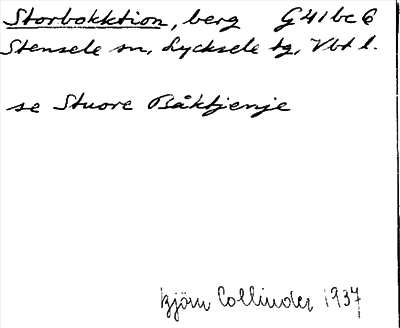 Storbakktion, berg G 41 bc 6
Stensele sn, Lycksele tg, Vbt l.
se Stuore Båktjenje
Björn Collinder 1937